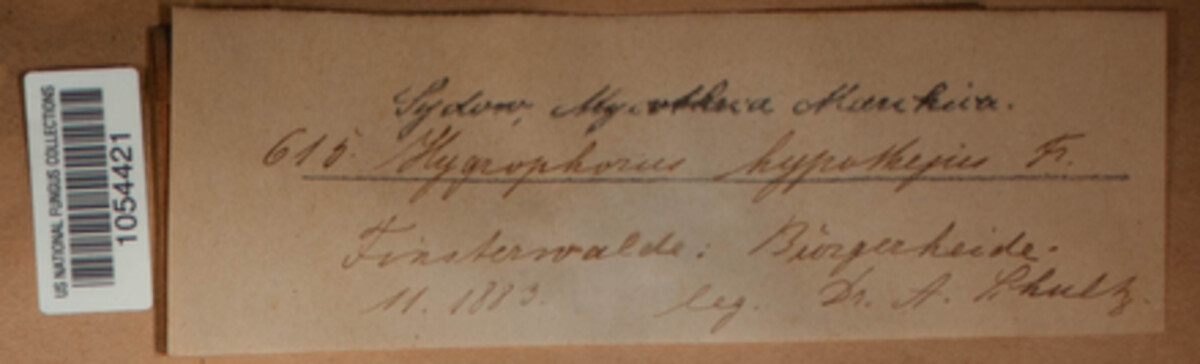 US NATIONAL FUNGUS COLLECTIONS
1054421
Sydow, Mycotheca Marchica.
615. Hygrophorus hypothejus Fr.
Finsterwalde: Bürgerheide.
11. 1883. leg. Dr. A. Schultz.